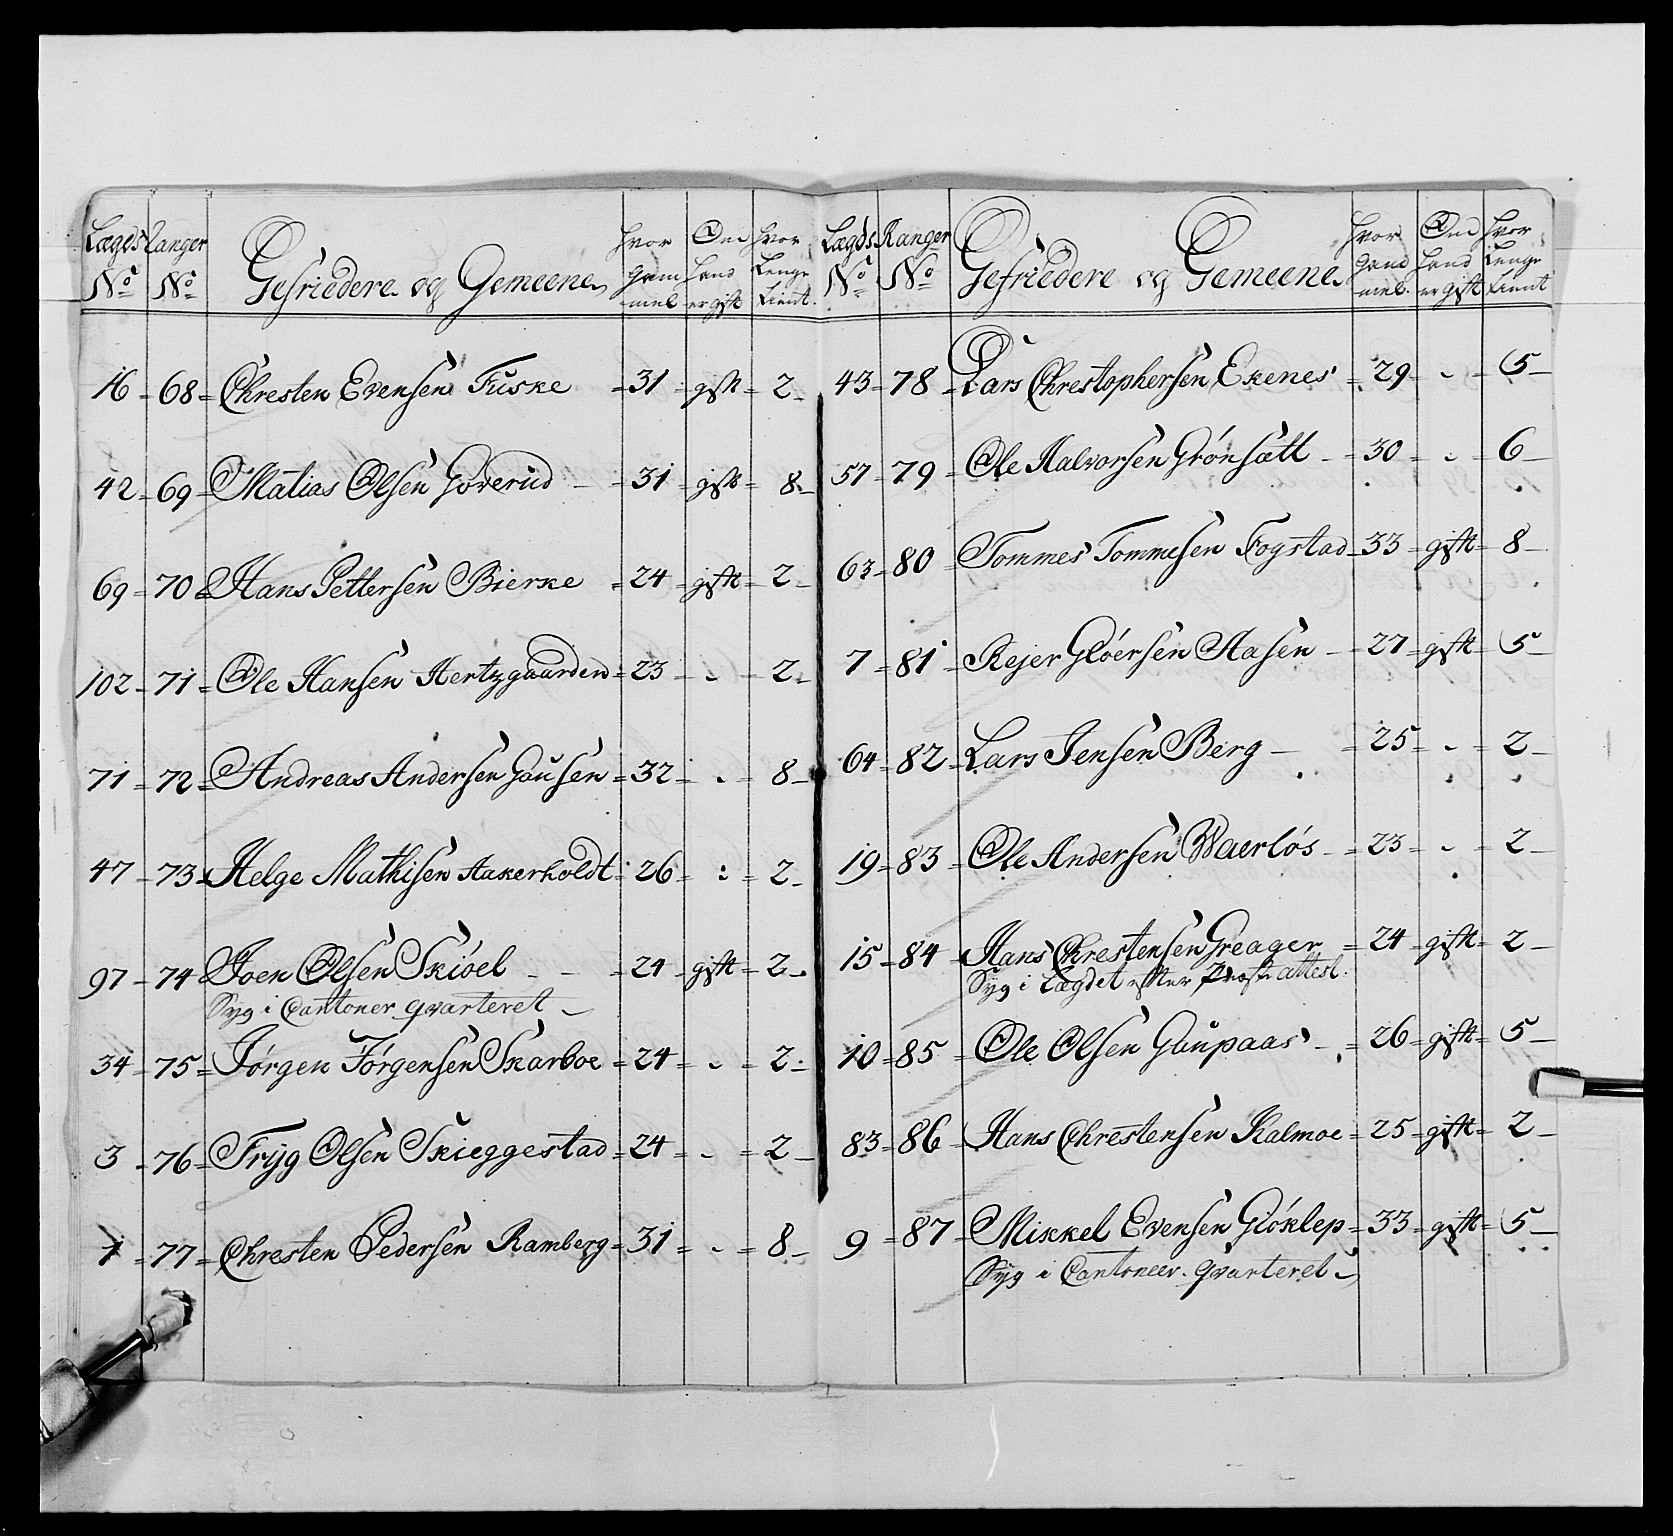 Lægds Ranger Gefriedere og Gemeene hvor Om hvor
No No gam hand Lenge
mel er gift tient.
16 - 68 - Chresten Evensen Fuske - 31 - gift - 2 -
42 - 69 - Matias Olsen Goverud - 31 - gift - 8 -
69 - 70 - Hans Pettersen Bierke - 24 - gift - 2 -
102 - 71 - Ole Hansen Hertzgaarden - 23 - - 2 -
71 - 72 - Andreas Andersen Gausen - 32 - - 8 -
47 - 73 - Helge Mathisen Aakerholdt - 26 - - 2 -
97 - 74 - Joen Olsen Skiöel - 24 - gift - 2 -
Syg i Cantoner qvarteret -
34 - 75 - Jørgen Jørgensen Skarboe - 24 - - 2 -
3 - 76 - Fryg Olsen Skieggestad - 24 - - 2 -
1 - 77 - Chresten Pedersen Ramberg - 31 - - 8 -
Lægds Ranger Gefriedere og Gemeene hvor Om hvor
No No gam hand Lenge
mel. er gift tient
43 - 78 - Lars Chrestophersen Ekenes - 29 - - 5 -
57 - 79 - Ole Halvorsen Grónsætt - 30 - - 6 -
63 - 80 - Tommes Tommesen Fogstad - 33 - gift - 8 -
7 - 81 - Rejer Glóersen Aasen - 27 - gift - 5 -
64 - 82 - Lars Jensen Berg - 25 - - 2 -
19 - 83 - Ole Andersen Waerlós - 23 - - 2 -
15 - 84 - Hans Chrestensen Greager - 24 - gift - 2 -
Syg i Lægdet efter Præste attest.
10 - 85 - Ole Olsen Gaupaas - 26 - gift - 5 -
83 - 86 - Hans Chrestensen Kalmoe - 25 - gift - 2 -
9 - 87 - Mikkel Evensen Giöklep - 33 - gift - 5 -
Syg i Cantoneer. qvarteret -